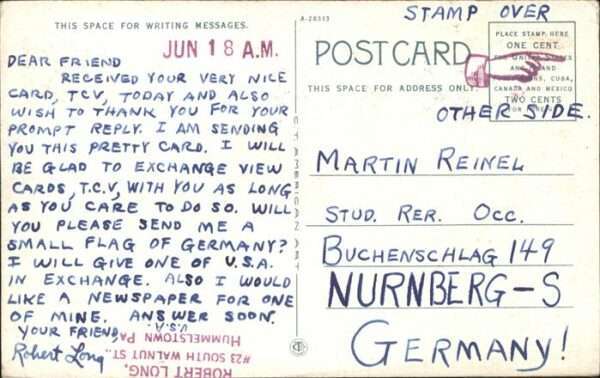 THIS SPACE FOR WRITING MESSAGES.
JUN 18 A.M.
DEAR FRIEND
RECEIVED YOUR VERY NICE
CARD, TCV, TODAY AND ALSO
WISH TO THANK YOU FOR YOUR
PROMPT REPLY. I AM SENDING
YOU THIS PRETTY CARD. I WILL
BE GLAD TO EXCHANGE VIEW
CARDS, T.C.V, WITH YOU AS LONG
AS YOU CARE TO DO SO. WILL
YOU PLEASE SEND ME A
SMALL FLAG OF GERMANY?
I WILL GIVE ONE OF U.S.A.
IN EXCHANGE. ALSO I WOULD
LIKE A NEWSPAPER FOR ONE
OF MINE. ANSWER SOON.
YOUR FRIEND
Robert Long
ROBERT LONG,
#23 SOUTH WALNUT ST.,
HUMMELSTOWN PA.
U.S.A.
A-28353
STAMP OVER
POST CARD
THIS SPACE FOR ADDRESS ONLY.
PLACE STAMP HERE
ONE CENT
CUBA,
CANADA AND MEXICO
TWO CENTS
OTHER SIDE.
MARTIN REINEL
STUD. RER. OCC.
BUCHENSCHLAG 149
NURNBERG-S
GERMANY!